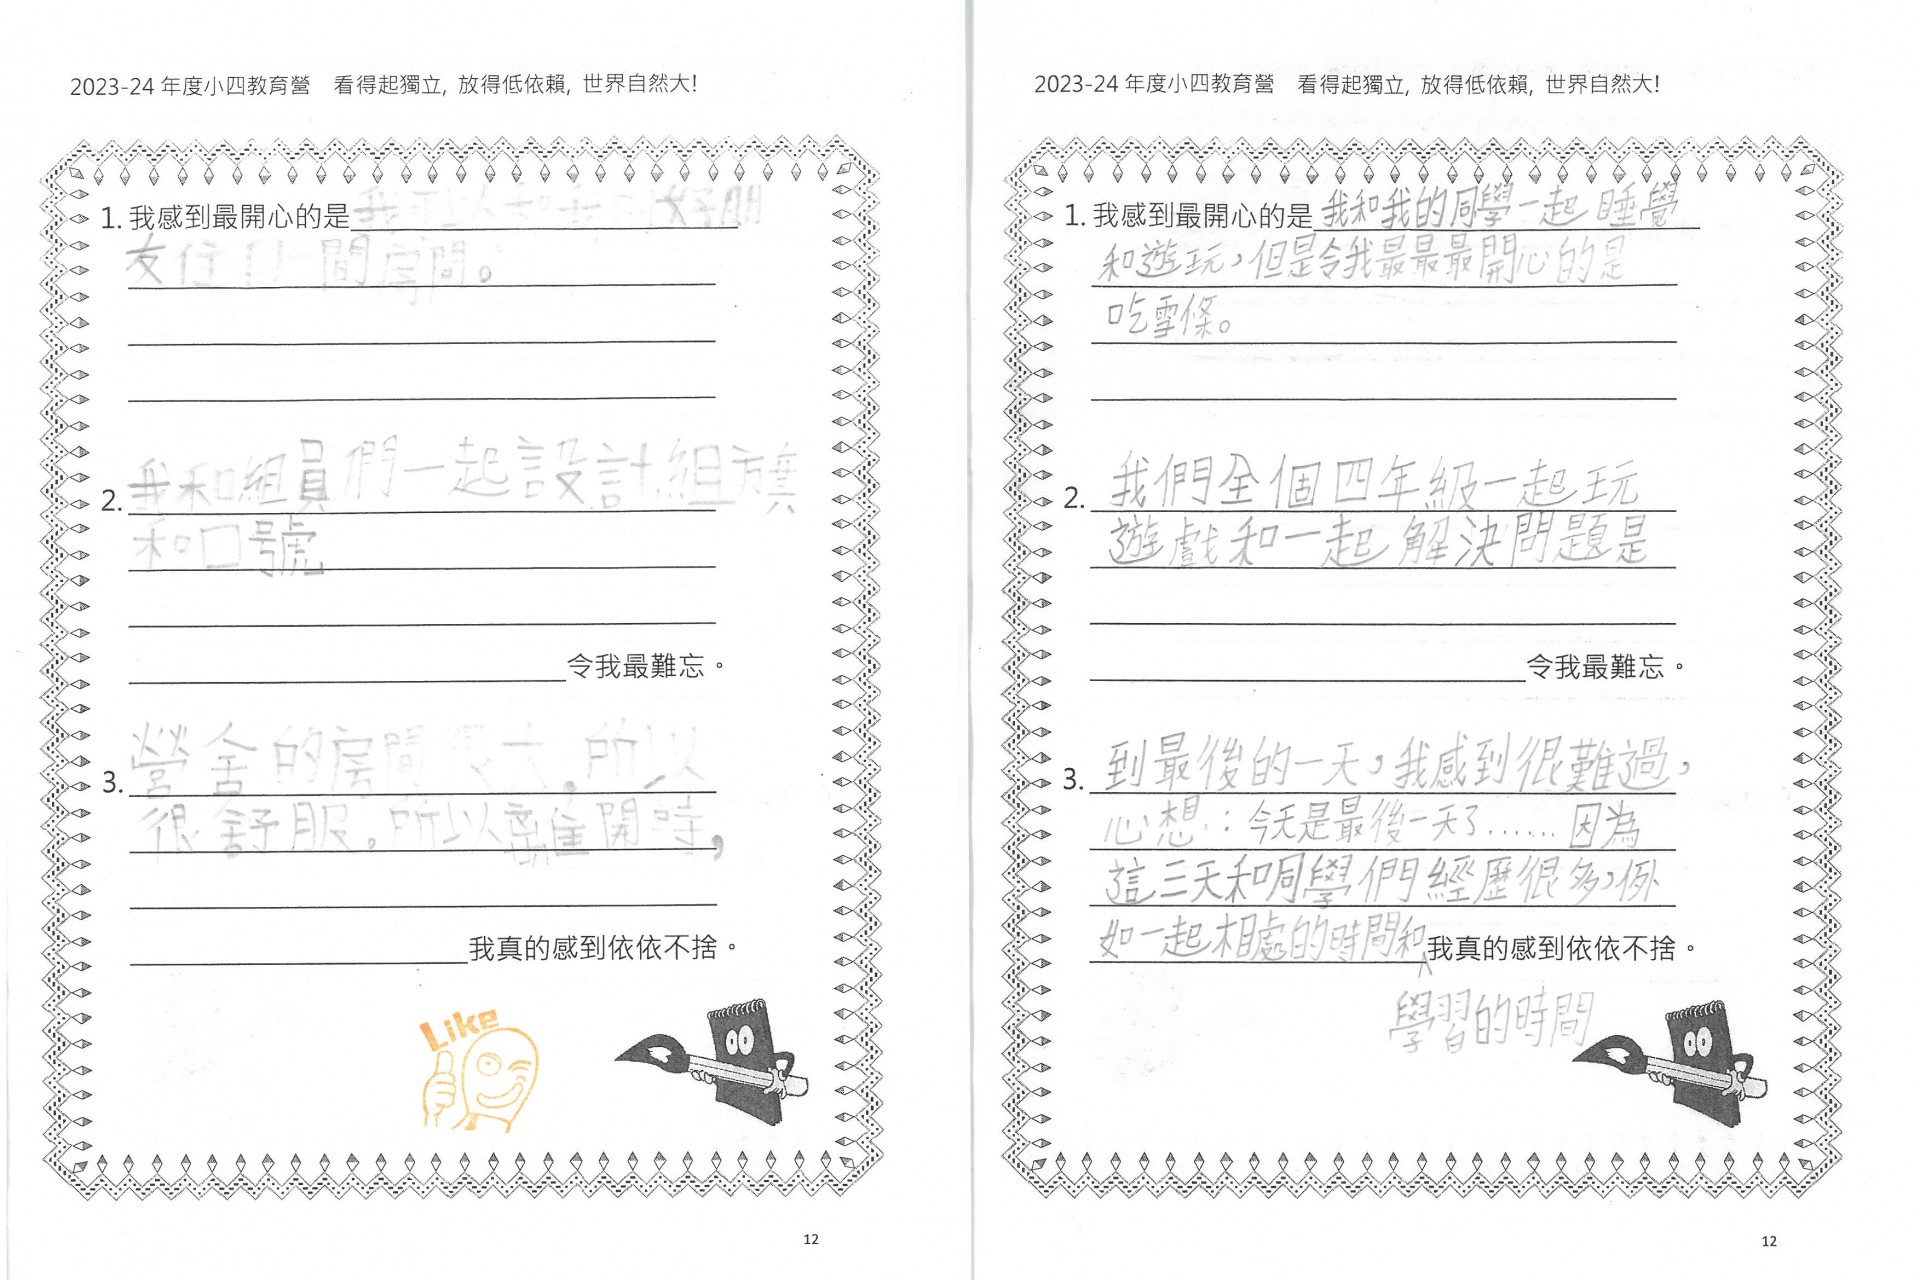 2023-24 年度小四教育營　看得起獨立, 放得低依賴, 世界自然大!
1. 我感到最開心的是我可以和我的好朋
友住同一間房間。
2. 我和組員們一起設計組旗
和口號
令我最難忘。
3. 營舍的房間很大。所以
很舒服。所以離開時，
我真的感到依依不捨。
Like
12
2023-24 年度小四教育營　看得起獨立, 放得低依賴, 世界自然大!
1. 我感到最開心的是我和我的同學一起睡覺
和遊玩，但是令我最最最開心的是
吃雪條。
2. 我們全個四年級一起玩
遊戲和一起解決問題是
令我最難忘。
3. 到最後的一天，我感到很難過，
心想：今天是最後一天了......因為
這三天和同學們經歷很多，例
如一起相處的時間和我真的感到依依不捨。
學習的時間
12